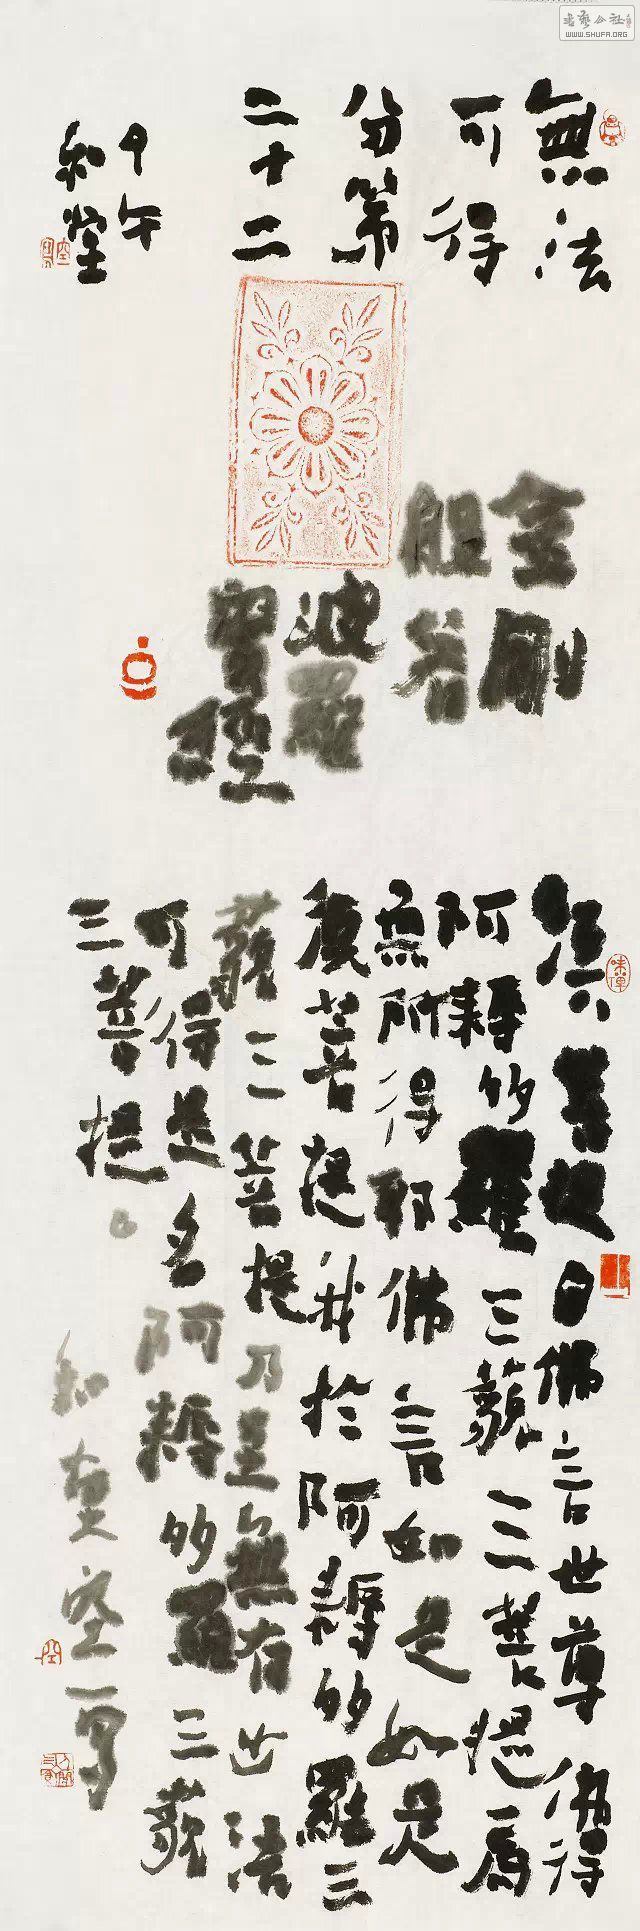 书艺公社
WWW.SHUFA.ORG
無法
可得
分第
二十二
甲午
和堂
金剛
般若
波羅
蜜經
須菩提白佛言世尊佛得
阿耨多羅三藐三菩提爲
無所得耶佛言如是如是
須菩提我於阿耨多羅三
藐三菩提乃至無有少法
可得是名阿耨多羅三藐
三菩提
和堂空一寫